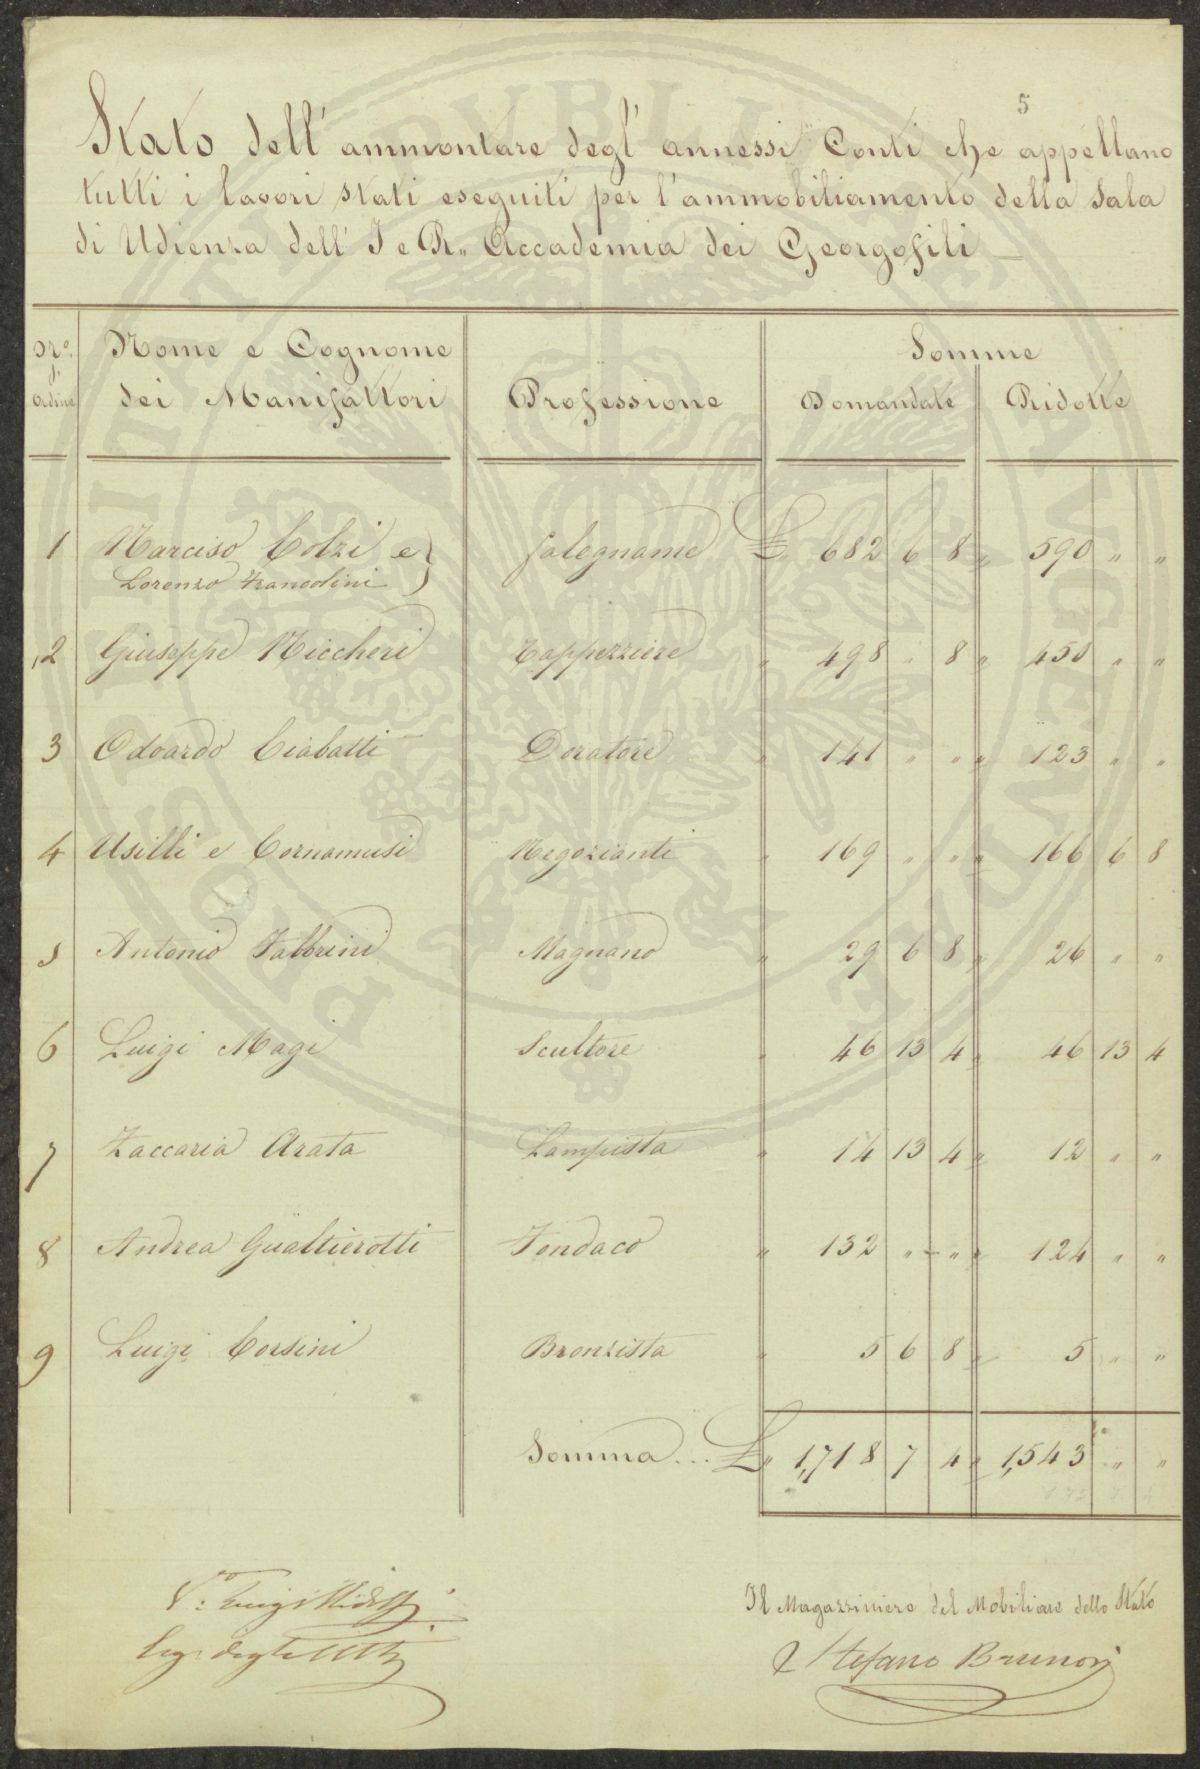 5
Stato dell' ammontare degl' annessi Conti che appellano
tutti i lavori stati eseguiti per l'ammobiliamento della Sala
di Udienza dell' I e R.. Accademia dei Georgofili
Nro. d' Ordine | Nome e Cognome dei Manifattori | Professione | Somme Domandate | Ridotte
1 Narciso Colzi e } falegname £.. 682 6 8 " 590 " "
Lorenzo Francolini
2 Giuseppe Niccheri Tappezziere " 498 " 8 " 450 " "
3 Odoardo Ciabatti Doratore " 141 " " " 123 " "
4 Usilli e Cornamusi Negozianti " 169 " " " 166 6 8
5 Antonio Fabbrini Magnano " 29 6 8 " 26 " "
6 Luigi Magi Scultore " 46 13 4 " 46 13 4
7 Zaccaria Arata Lampista " 14 13 4 " 12 " "
8 Andrea Gualtierotti Fondaco " 132 " " " 124 " "
9 Luigi Corsini Bronzista " 5 6 8 " 5 " "
Somma... £.. 1,718 7 4 " 1,543 " "
Il Magazziniere del Mobiliare dello Stato
Stefano Brunori
V.o Luigi